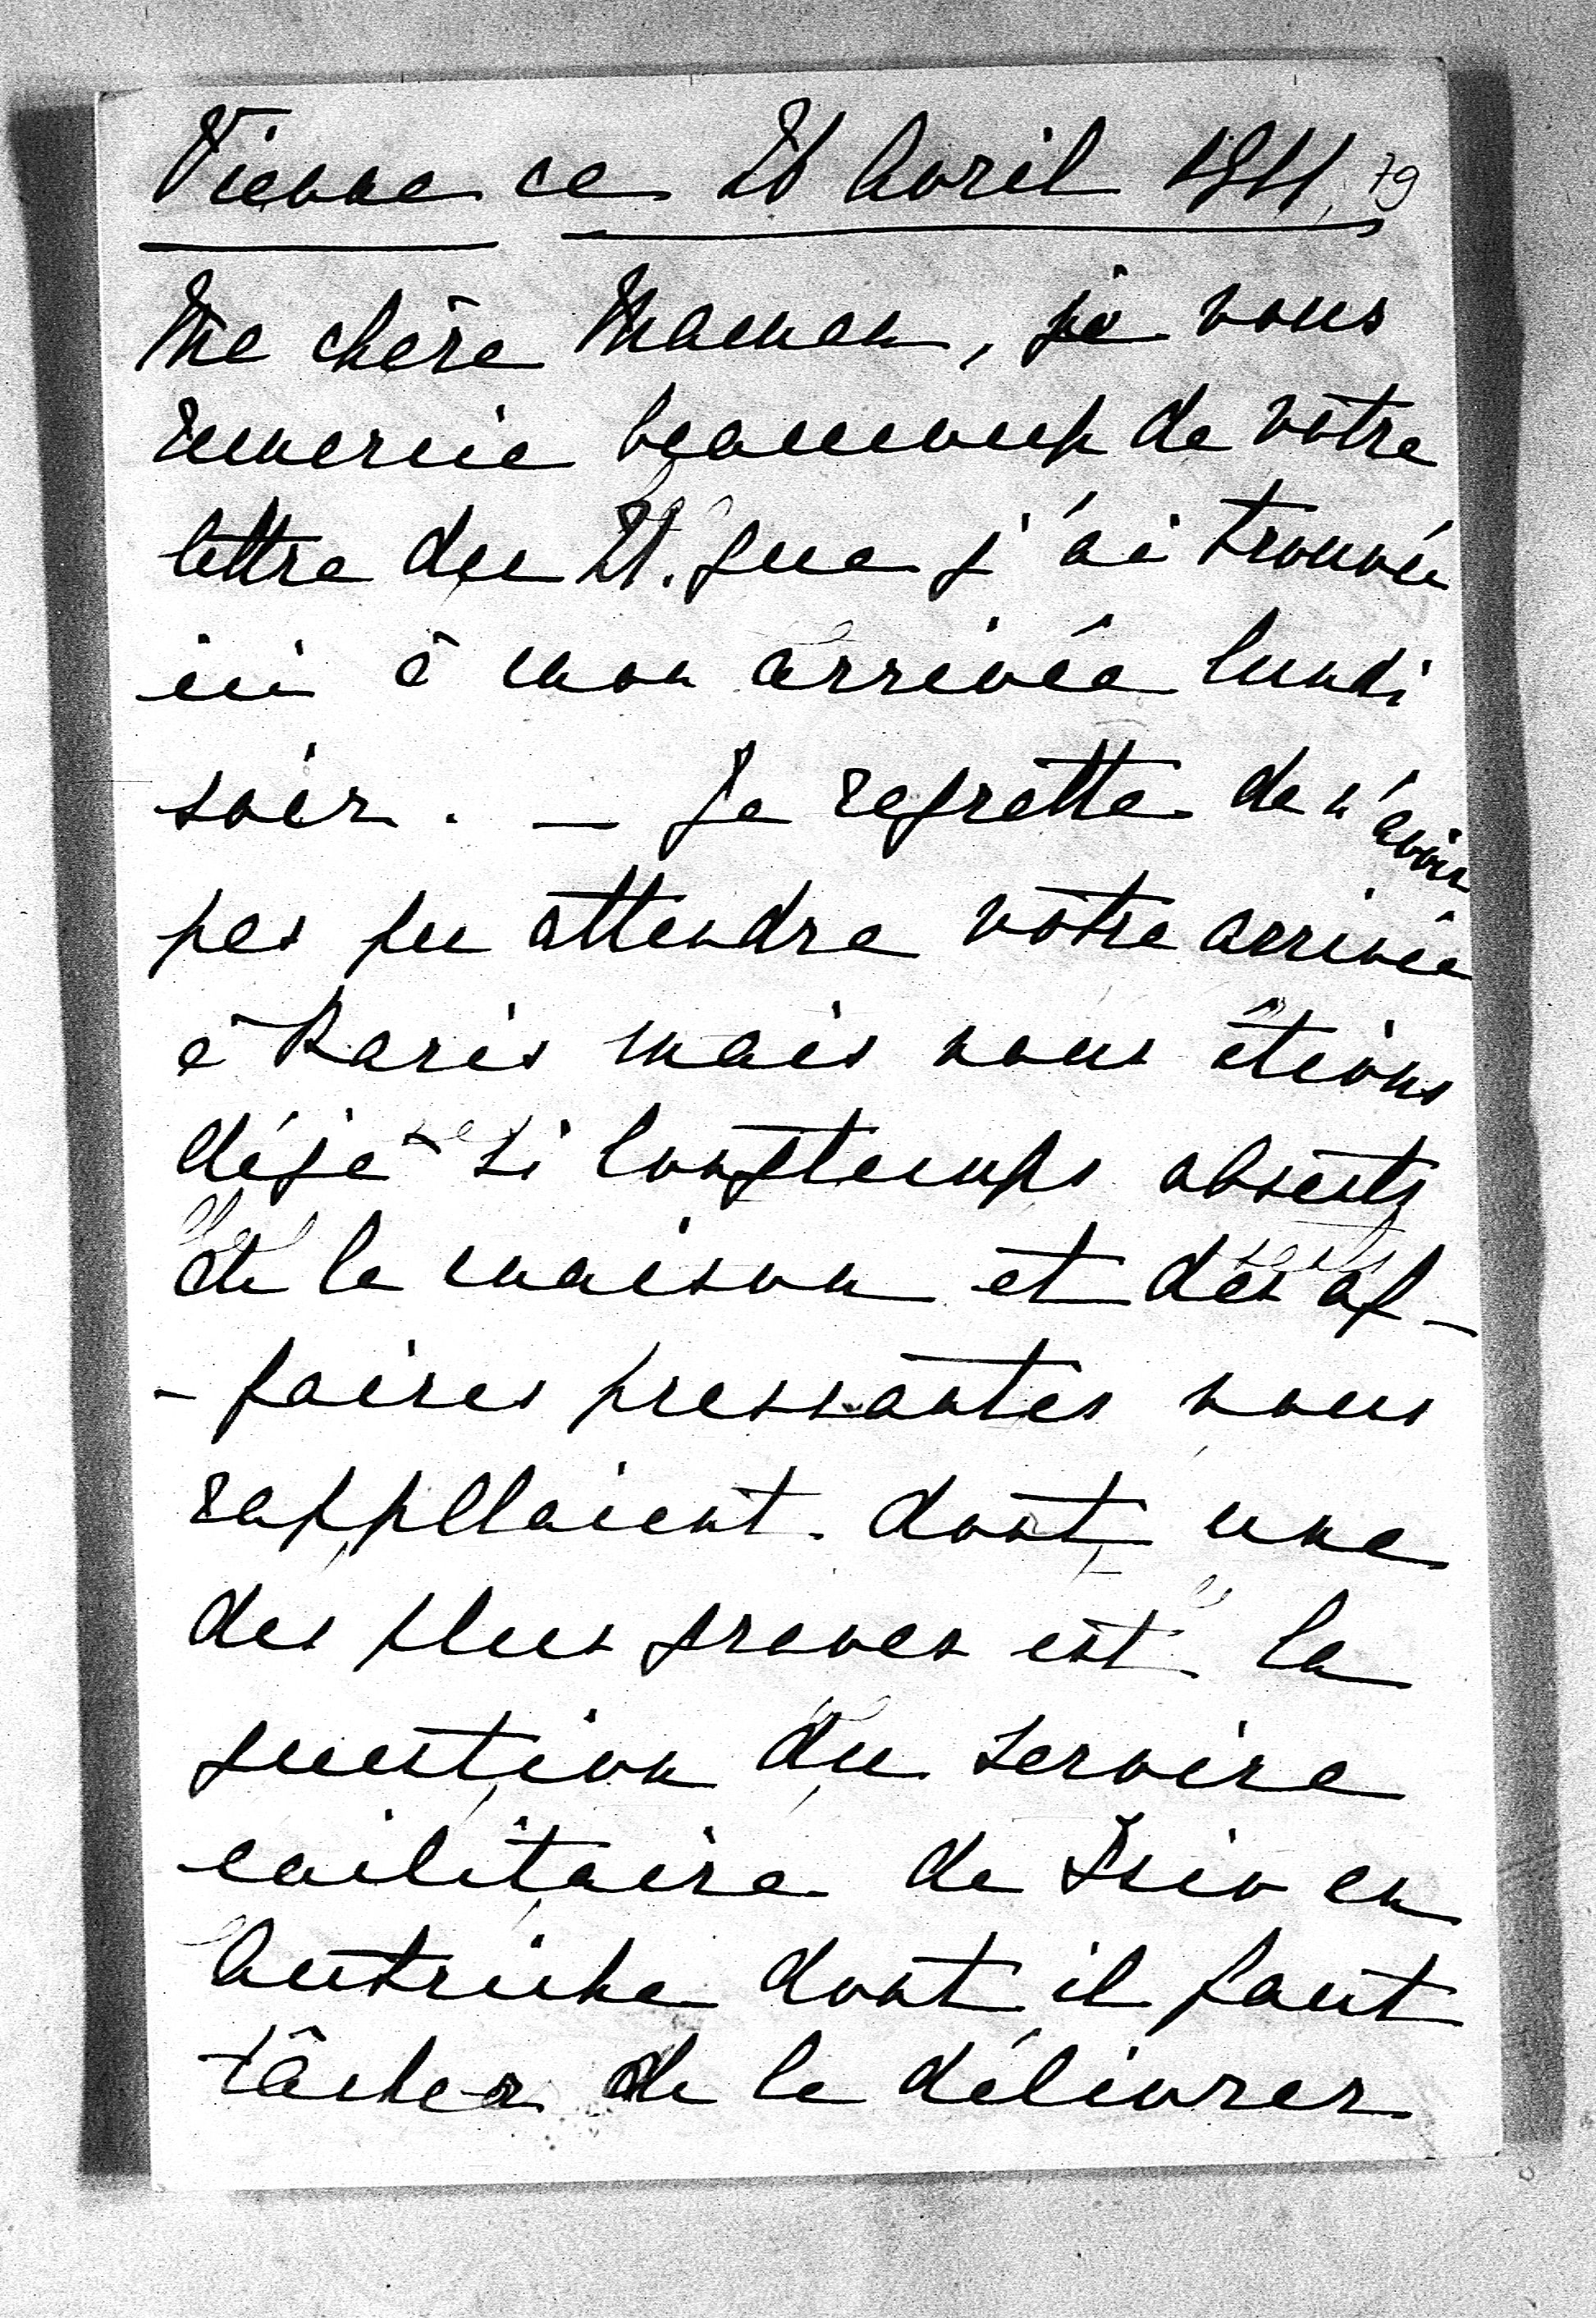 Vienne ce 26 Avril 1911, 79
Ma chère Maman, je vous
remercie beaucoup de votre
lettre du 21. que j'ai trouvée
ici à mon arrivée lundi
soir. — Je regrette de n'avoir
pas pu attendre votre arrivée
à Paris mais nous étions
déjà si longtemps absents
de la maison et des af-
-faires pressantes nous
rappellaient. dont une
des plus graves est la
question du service
militaire de en
Autriche dont il faut
tâcher de le délivrer